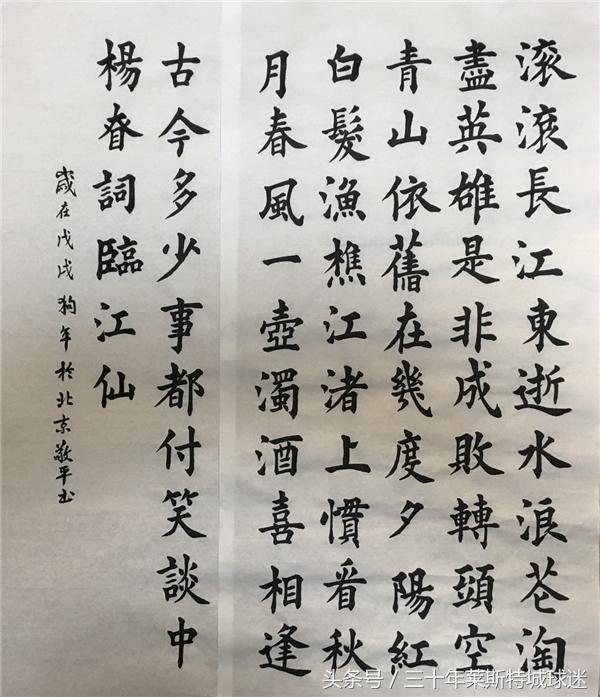 滚滚長江東逝水浪花淘
盡英雄是非成敗轉頭空
青山依舊在幾度夕陽紅
白髮漁樵江渚上慣看秋
月春風一壺濁酒喜相逢
古今多少事都付笑談中
楊眘詞臨江仙
歲在戊戌狗年於北京敬平书
头条号／三十年莱斯特城球迷